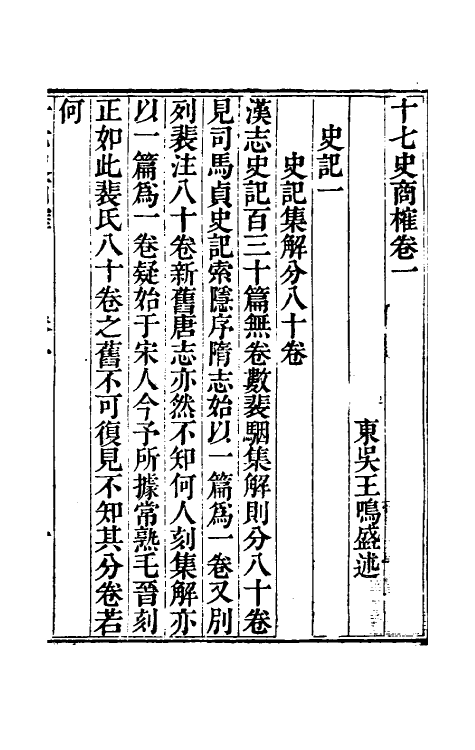 十七史商榷卷一
東吳王鳴盛述
史記一
史記集解分八十卷
漢志史記百三十篇無卷數裴駰集解則分八十卷
見司馬貞史記索隱序隋志始以一篇爲一卷又別
列裴注八十卷新舊唐志亦然不知何人刻集解亦
以一篇爲一卷疑始于宋人今予所據常熟毛晉刻
正如此裴氏八十卷之舊不可復見不知其分卷若
何